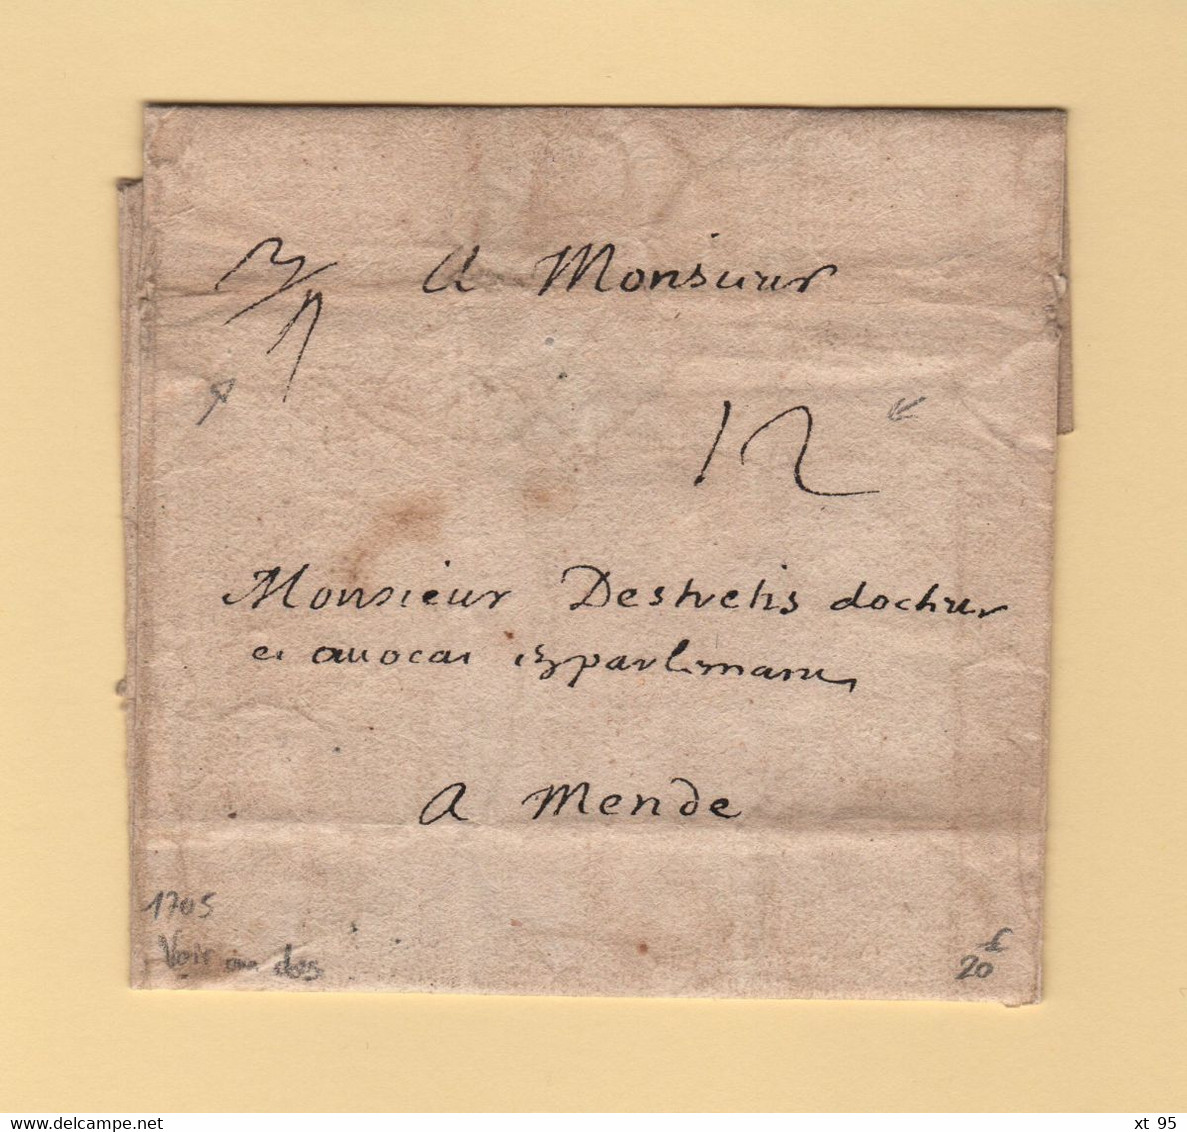 A Monsieur
12
Monsieur Destretis docteur
et auocat parlemant
A Mende
1705
Voir au dos
20 £
www.delcampe.net
xt 95